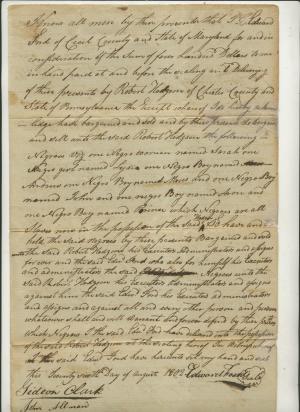 Know all men by these presents that I Edward
Ford of Cecil County and State of Maryland for and in
consideration of the Sum of four hundred Dollars to me
in hand paid at and before the sealing and Delivery
of these presents by Robert Hodgson of Chester County and
State of Pennsylvania the Receipt whereof I do hereby acknow
ledge have bargained and sold and by these presents do bargain
and sell unto the said Robert Hodgson the following
Negroes Viz one Negroe woman named Sarah one
Negro girl named Lydia one Negro Boy named
one Negro Boy named and one Negro Boy
named John and one negro Boy named and
one Negro Boy named which Negroes are all
Slaves now in the possession of the said To have and
hold the said Negroes by these presents Bargained and sold
unto the said Robert Hodgson his Executors Administrators and assigns
for ever and the said Ford also for himself his Executors
and administrators the said Negroes unto the
said Robert Hodgson his Executors Administrators and assigns
against him the said Ford his Executors administrators
and assigns and against all and every other person and persons
whatsoever shall and will warrant and forever defend by these presents
which Negroes I the said Ford have delivered into the possession
of the said Robert Hodgson at the sealing hereof In Witness whereof
I the said Ford have hereunto set my hand and seal
this Twenty day of August 1802 Edward Ford Seal
Gideon Clark
John